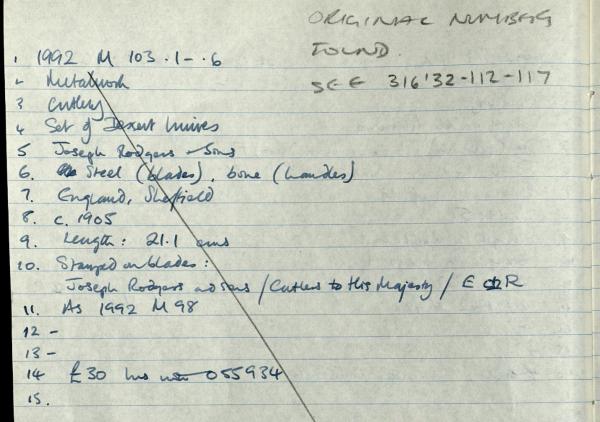 ORIGINAL NUMBERS
FOUND.
SEE 316'32-112-117
1 1992 M 103.1-.6
2 Metalwork
3 Cutlery
4 Set of Dessert knives
5 Joseph Rodgers & Sons
6. Steel (blades), bone (handles)
7. England, Sheffield
8. c. 1905
9. Length: 21.1 cms
10. Stamped on blades:
Joseph Rodgers and sons / Cutlers to His Majesty / E R
11. As 1992 M 98
12 -
13 -
14 £30 055934
15.